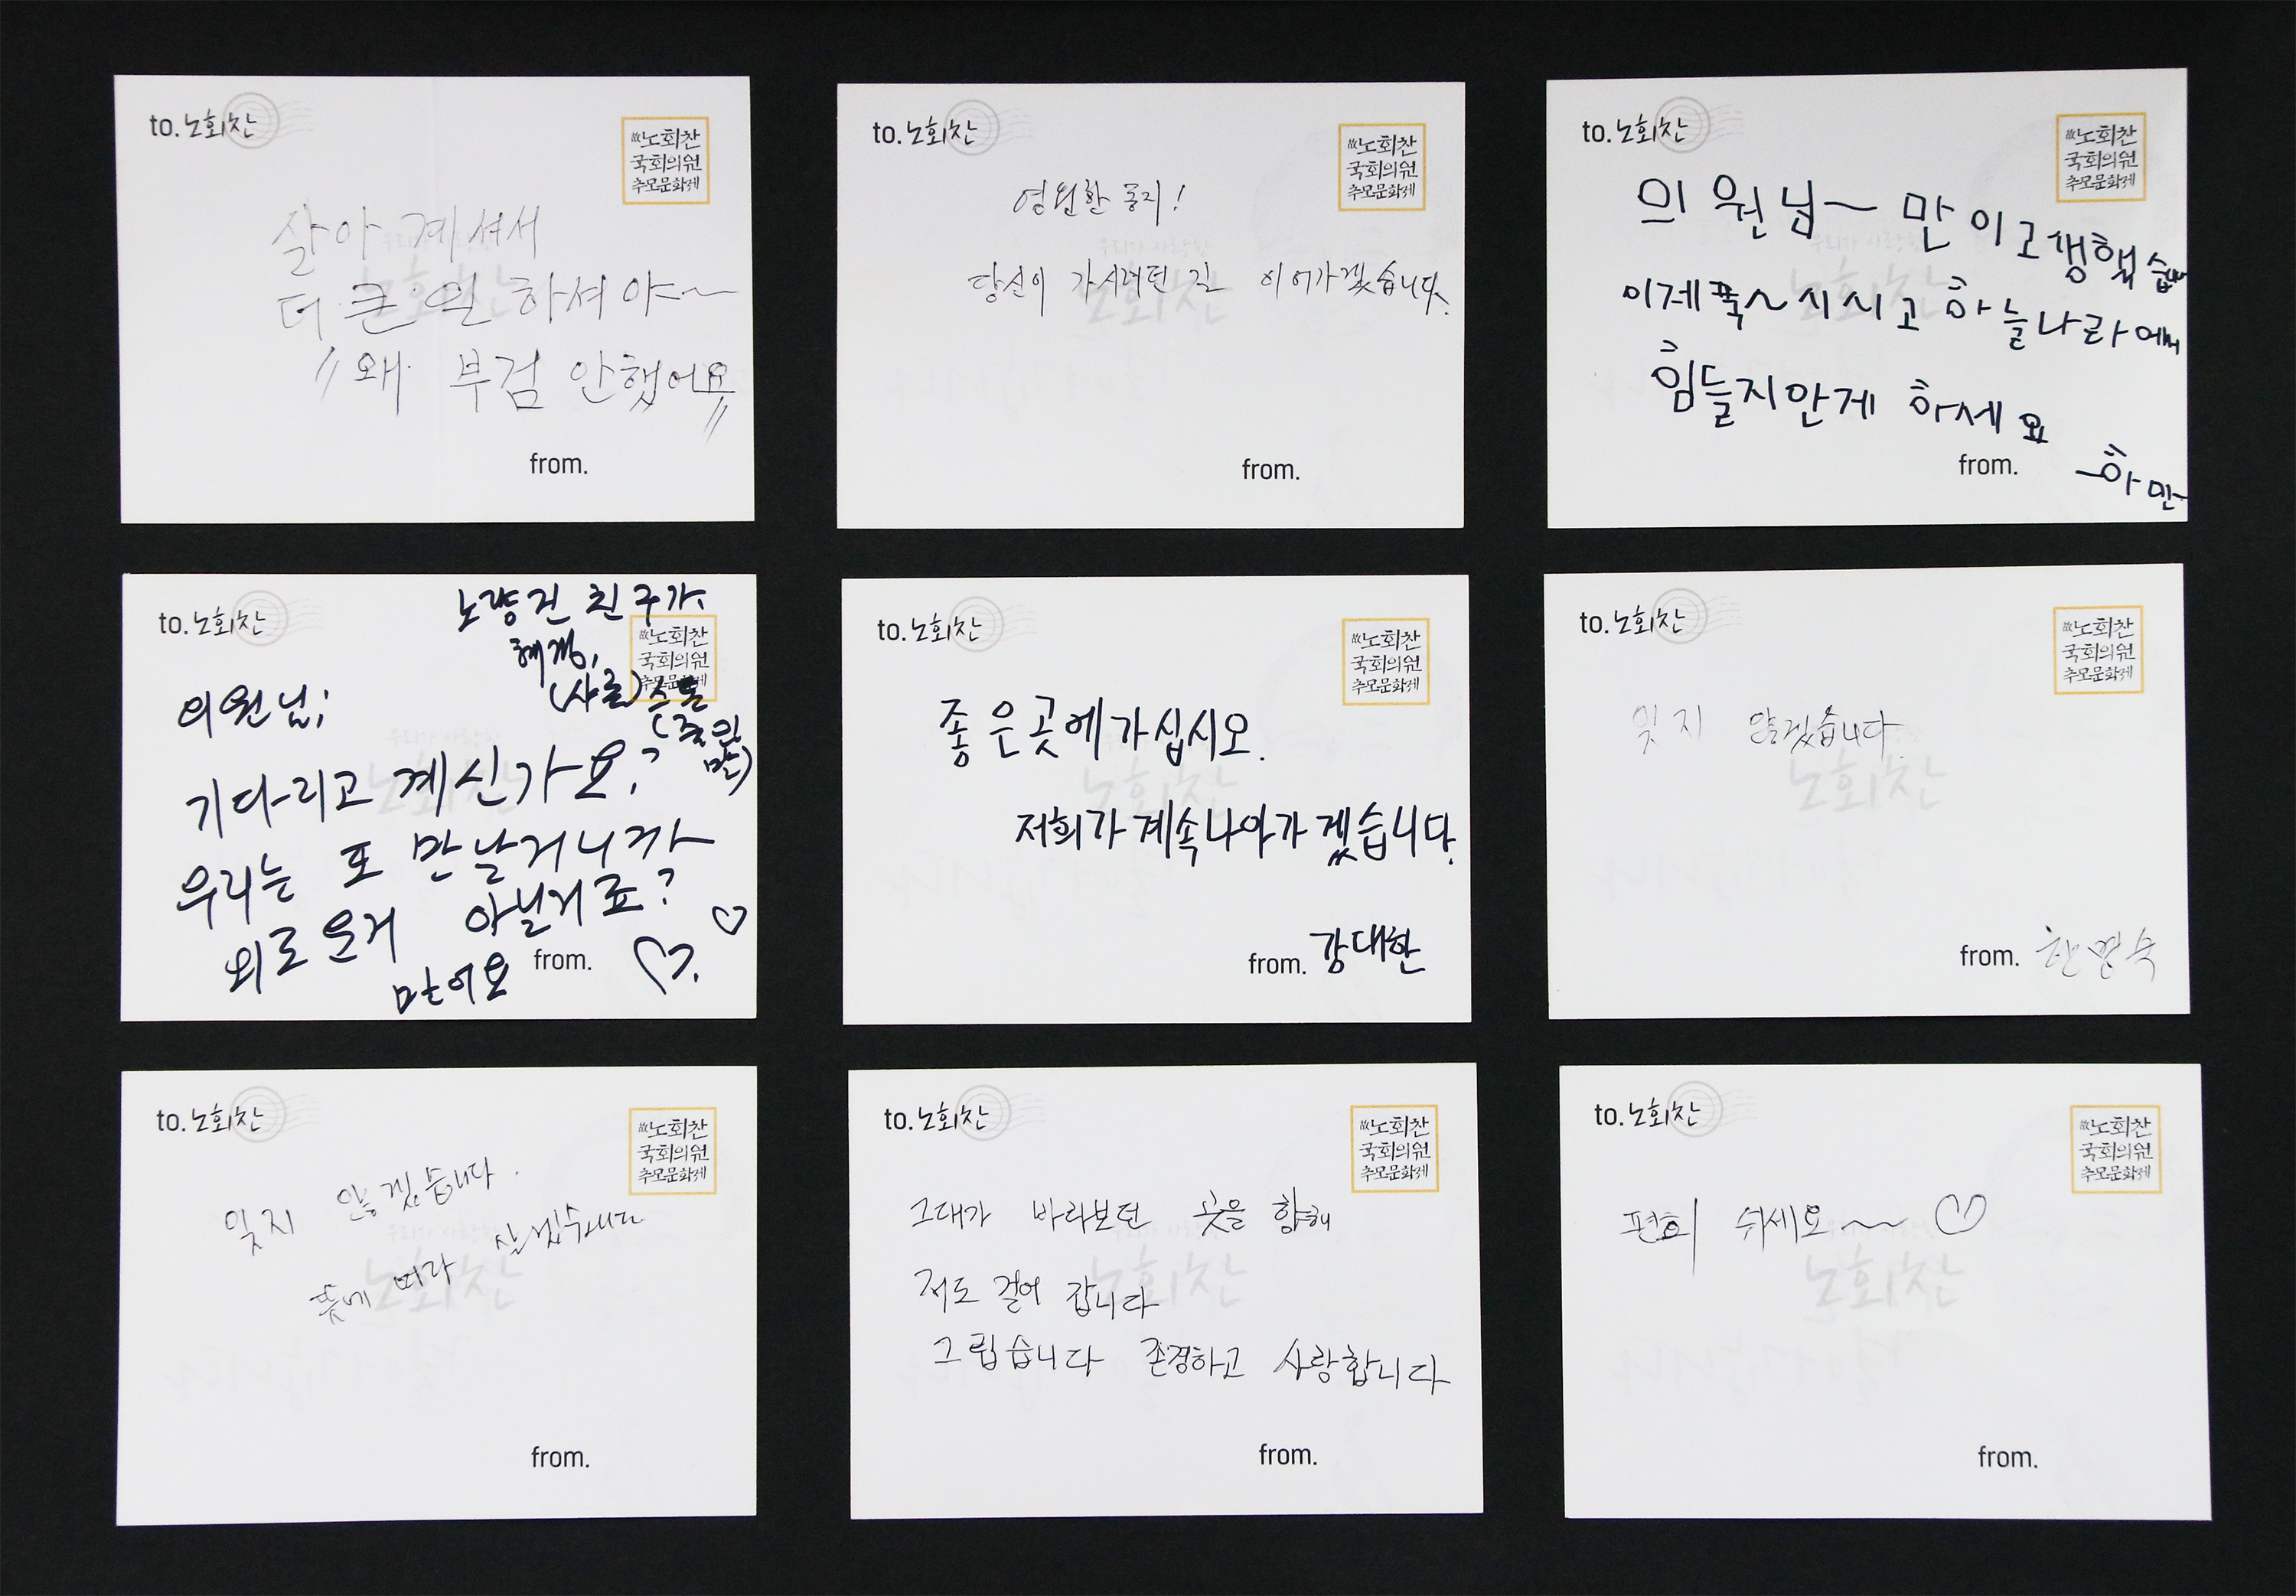 to. 노회찬
故노회찬
국회의원
추모문화제
살아 계셔서
더 큰 일 하셔야~
"왜 부검 안했어요"
from.
to. 노회찬
故노회찬
국회의원
추모문화제
영원한 동지!
당신이 가시려던 길 이어가겠습니다.
from.
to. 노회찬
故노회찬
국회의원
추모문화제
의원님~ 만이고생했습
이제푹~시시고 하늘나라에서
힘들지안게 하세요
from.
to. 노회찬
노량진 친구가
혜경,
(샤론)
故노회찬
국회의원
추모문화제
의원님;
기다리고 계신가요?
우리는 또 만날거니까
외로운거 아닐거죠?
만어요
from.
to. 노회찬
故노회찬
국회의원
추모문화제
좋은곳에가십시오.
저희가계속나아가겠습니다.
from. 강대한
to. 노회찬
故노회찬
국회의원
추모문화제
우리가 사랑한
노회찬
잊지 않겠습니다
from.
to. 노회찬
故노회찬
국회의원
추모문화제
잊지 않겠습니다.
뜻에 따라 살겠습니다
from.
to. 노회찬
故노회찬
국회의원
추모문화제
그대가 바라보던 곳을 향해
저도 걸어 갑니다
그립습니다 존경하고 사랑합니다
from.
to. 노회찬
故노회찬
국회의원
추모문화제
편히 쉬세요~~
우리가 사랑한
노회찬
from.